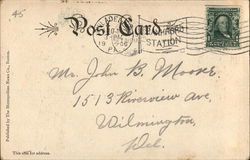 45
Post Card
STATION
Mr. John B. Moore,
1513 Riverview Ave,
Wilmington,
Del.
Published by The Metropolitan News Co., Boston.
This side for address.